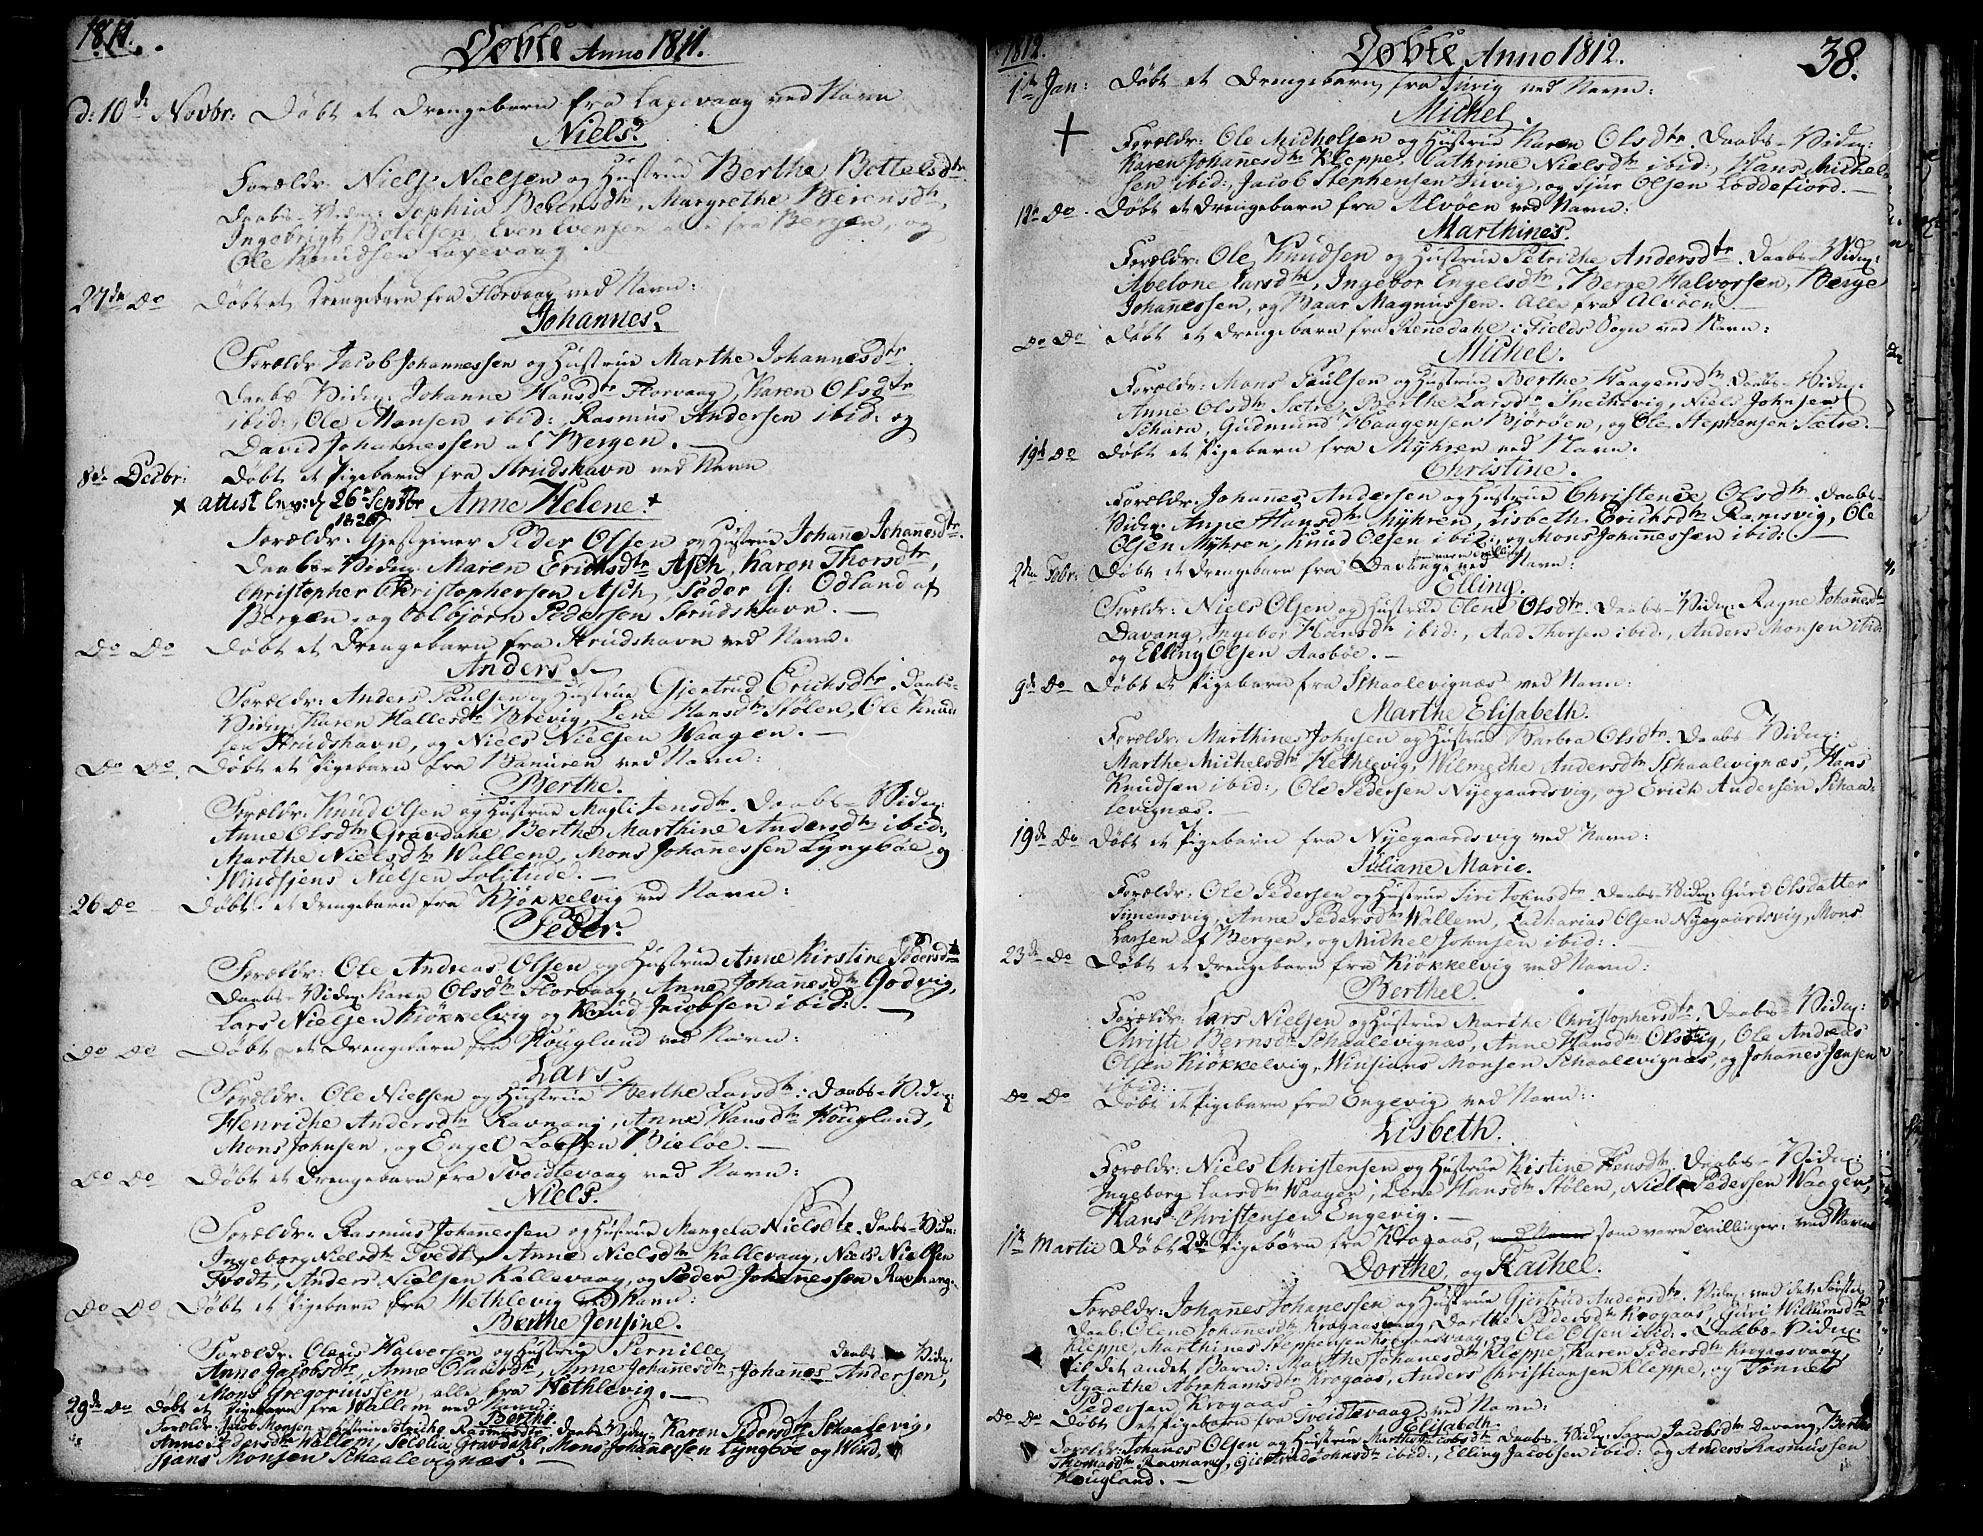 1811.
Døbte Anno 1811.
d: 10de Novbr: Døbt et Drengebarn fra Laxevaag ved Navn
Niels.
Forældr: Niels Nielsen og Hustrue Berthe Bottelsdtr
Daabs-Vidn: Sophia Berensdtr, Margrethe Berensdtr,
Ingebrigt Botelsen, Even Evensen alle fra Bergen, og
Ole Knudsen Laxevaag.
27de Do Døbt et Drengebarn fra Florvaag ved Navn:
Johannes.
Forældr: Jacob Johannessen og Hustrue Marthe Johannesdtr.
Daabs Vidn: Johanne Hansdtr Florvaag, Karen Olsdtr
ibid:, Ole Monsen ibid: Rasmus Andersen ibid: og
David Johannessen af Bergen.
8de Decbr: Døbt et Pigebarn fra Strudshavn ved Navn
x attist 26 Septbr 1826 Anne Helene. x
Forældr: Gjestgiver Peder Olsen og Hustrue Johanne Johanesdtr.
Daabs-Vidn: Maren Erichsdtr Ask, Karen Thorsdtr,
Christopher Christophersen Ask, Peder G: Odland af
Bergen, og Colbjørn Pedersen Strudshavn.
Do Do Døbt et Drengebarn fra Strudshavn ved Navn:
Anders.
Forældr: Anders Paulsen og Hustrue Gjertrud Erichsdtr. Daabs-
Vidn: Karen Hallesdtr Brevig, Lene Hansdtr Stølen, Ole Knud
sen Strudshavn, og Niels Nielsen Waagen.
Do Do Døbt et Pigebarn fra Baneren ved Navn:
Berthe.
Forældr: Knud Olsen og Hustrue Magli Jensdtr. Daabs-Vidn:
Anne Olsdtr Gravdahl, Berthe Marthine Andersdtr ibid:,
Marthe Nielsdtr Wallem, Mons Johannessen Lyngbøe og
Windsjens Nielsen Solitude.
26 Do Døbt et Drengebarn fra Kjøkkelvig ved Navn:
Peder.
Forældr: Ole Andreas Olsen og Hustrue Anne Kirstine Pedersdtr
Daabs-Vidn: Karen Olsdtr Florvaag, Anne Johanesdtr Godvig,
Lars Nielsen Kiøkkelvig og Knud Jacobsen ibid:.
Do Do Døbt et Drengebarn fra Hougland ved Navn:
Lars.
Forældr: Ole Nielsen og Hustrue Berthe Larsdtr: Daabs-Vidn:
Henriche Andersdtr Ravnang, Anne Hansdtr Hougland,
Mons Johnsen, og Engel Larsen Bieløe.
Do Do Døbt et Drengebarn fra Tveidtevaag ved Navn:
Niels.
Forældr: Rasmus Johannessen og Hustrue Mangela Nielsdtr. Daabs-Vidn:
Ingeborg Nielsdtr Tvedt, Anne Nielsdtr Kallevaag, Niels Nielsen
Tvedt, Anders Nielsen Kallevaag, og Peder Johannessen Ravnang.
Do Do Døbt et Pigebarn fra Hethlevig ved Navn:
Berthe Jensine.
Forældr: Claus Halversen og Hustrue Pernille Daabs Vidn:
Anne Jacobsdtr, Anne Clausdtr, Anne Johannesdtr, Johannes Andersen,
Mons Gregoriussen, alle fra Hethlevig.
29de Do Døbt et Pigebarn fra Wallem ved Navn:
Berthe.
Forældr: Jacob Monsen og Hustrue Petriche Rasmusdtr. Daabs Vidn: Karen Pedersdtr Schaalevig,
Anne Pedersdtr Wallem, Secelia Gravdahl, Mons Johanessen Lyngbøe og Wind,
sjans Monsen Schaalevignæs.
1812.
Døbte Anno 1812.
38.
1te Jan: Døbt et Drengebarn fra Juvig ved Navn:
Michel.
Forældr: Ole Micholsen og Hustrue Karen Olsdtr. Daabs-Vidn:
Karen Johanesdtr Kleppe, Cathrine Nielsdtr ibid:, Hans Michel-
sen ibid:, Jacob Stephensen Juvig, og Sjur Olsen Loddefiord.
12te Do. Døbt et Drengebarn fra Alvøen ved Navn:
Marthines.
Forældr: Ole Knudsen og Hustrue Petriche Andersdtr. Daabs-Vidn:
Abelone Larsdtr, Ingebor Engelsdtr, Berge Halvorsen, Berge
Johannessen, og Baar Magnussen. Alle fra Alvøen.
Do Do Døbt et Drengebarn fra Rennedahl i Fields Sogn ved Navn:
Michel.
Forældr: Mons Paulsen og Hustrue Berthe Haagensdtr. Daabs-Vidn:
Anne Olsdtr Sætre, Berthe Larsdtr Snechevig, Niels Johnsen
Schara, Gudmund Haagensen Bjørøen, og Ole Stephensen Sætre.
19de Do Døbt et Pigebarn fra Myhren ved Navn.
Christine.
Forældr: Johannes Andersen og Hustrue Christence Olsdtr. Daabs-
Vidn: Anne Hansdtr Myhren, Lisbeth Erichsdtr Ramsvig, Ole
Olsen Myhren, Knud Olsen ibid:, og Mons Johannessen ibid:
2den Febr: Døbt et Drengebarn fra Davange ved Navn:
Elling.
Forældr: Niels Olsen og Hustrue Olene Olsdtr. Daabs-Vidn: Ragne Johanesdtr
Davang, Ingebor Hansdtr ibid:, Aad Thorsen ibid:, Anders Monsen ibid:
og Elling Olsen Aasbøe.
9de Do Døbt et Pigebarn fra Schaalevignæs ved Navn:
Marthe Elisabeth.
Forældr: Marthines Johnsen og Hustrue Barbra Olsdtr. Daabs Vidn:
Marthe Michelsdtr Hethlevig, Wilmeche Andersdtr Schaalevignæs, Hans
Knudsen ibid:, Ole Pedersen Nyegaardsvig, og Erich Andersen Schaa-
levignæs.
19de Do Døbt et Pigebarn fra Nyegaardsvig ved Navn:
Juliane Marie.
Forældr: Ole Pedersen og Hustrue Siri Johnsdtr. Daabs-Vidn: Guri Olsdatter
Simensvig, Anne Pedersdtr Wallem, Zacharias Olsen Nyegaardsvig, Mons
Larsen af Bergen, og Michel Johnsen ibid:.
23de Do Døbt et Drengebarn fra Kiøkkelvig ved Navn:
Berthel.
Forældr: Lars Nielsen og Hustrue Marthe Christophersdtr. Daabs-Vidn:
Christi Bernsdtr Schaalevignæs, Anne Hansdtr Olsvig, Ole Andreas
Olsen Kiøkkelvig, Winsians Monsen Schaalevignæs, og Johanes Jensen
ibid:.
Do Do Døbt et Pigebarn fra Engevig ved Navn:
Lisbeth.
Forældr: Niels Christensen og Hustrue Kistine Jensdtr. Daabs-Vidn:
Ingeborg Larsdtr Waagen, Lene Hansdtr Stølen, Niels Pedersen Waagen,
Hans Christensen Engevig.
1te Martii Døbt 2de Pigebørn fra Krogaas, ved Navn som vare Tvillinger: ved Navn
Dorthe og Rachel.
Forældr: Johannes Johanessen og Hustrue Gjertrud Andersdtr. Vidn: ved det første
Daab: Olene Johannesdtr Krogaasvaag, Dorthe Pedersdtr Krogaas, Guri Willumsdtr
Kleppe, Marthines Stephensen Krogaasvaag, og Ole Olsen ibid:. Daabs-Vidn:
til det andet Barn: Marthe Johanesdtr Kleppe, Karen Pedersdtr Krogasvaag,
Agaathe Abrahamsdtr Krogaas, Anders Christiansen Kleppe, og Tønnes
Pedersen Krogaas.
Do Do Døbt et Pigebarn fra Tveidtevaag ved Navn:
Elisabeth.
Forældr: Johanes Olsen og Hustrue Marthe Jacobsdtr. Daabs Vidn: Sara Jacobsdtr Davang, Berthe
Thomasdtr Ravnang, Giertrud Johnsdtr ibid:, Elling Jacobsen ibid: og Anders Rasmussen
Hougland.